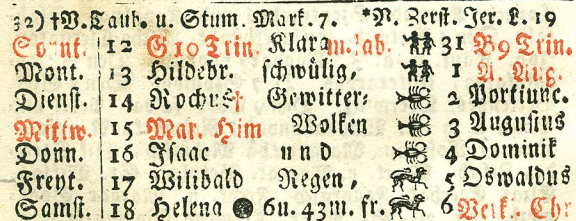 32) †V. Taub. u. Stum. Mark. 7. *V. Zerst. Jer. L. 19
Sonnt. 12 G 10 Trin. Klara m. ab. 31 B 9 Trin.
Mont. 13 Hildebr. schwülig, 1 A. Aug.
Dienst. 14 Rochus† Gewitter- 2 Portiunc.
Mittw. 15 Mar. Him Wolken 3 Augustus
Donn. 16 Isaac und 4 Dominik
Freyt. 17 Wilibald Regen, 5 Oswaldus
Samst. 18 Helena 6u. 43m. fr. 6 Verk. Chr